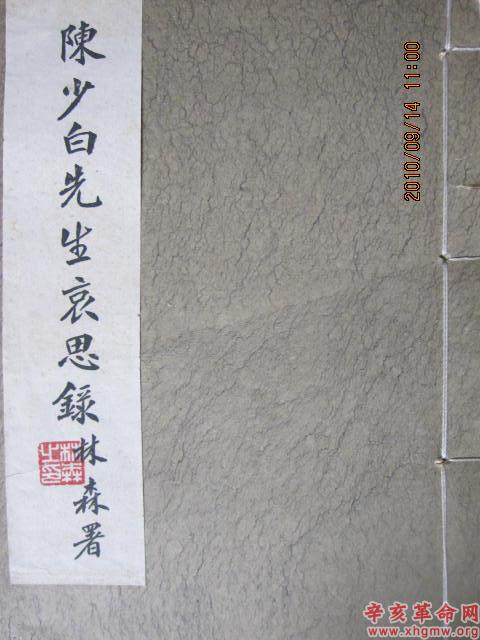 陳少白先生哀思錄
林森署
林森之印
2010/09/14 11:00
辛亥革命网
www.xhgmw.org